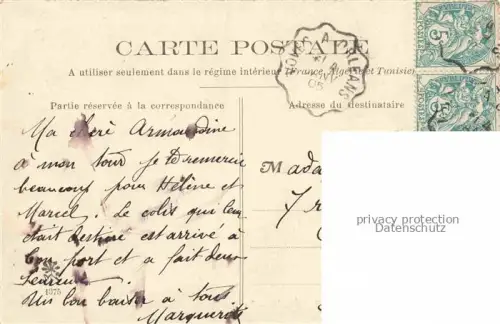 CARTE POSTALE
A utiliser seulement dans le régime intérieur (France, Algérie et Tunisie)
Partie réservée à la correspondance
Adresse du destinataire
Ma chère Armandine
à mon tour je te remercie
beaucoup pour Hélène et
Marcel. Le colis qui leur
était destiné est arrivé à
bon port et a fait deux
heureux
Un bon baiser à tous
Marguerite
1075
Mada
privacy protection
Datenschutz
A ORLEANS
5
5